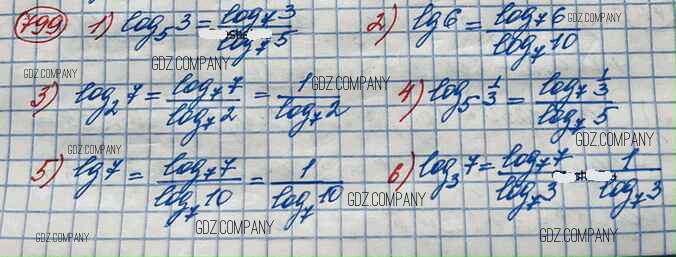 799 1) log₅3 = log₇3 / log₇5 2) lg6 = log₇6 / log₇10
GDZ.COMPANY GDZ.COMPANY GDZ.COMPANY
GDZ.COMPANY
3) log₂7 = log₇7 / log₇2 = 1 / log₇2 4) log₅ 1/3 = log₇ 1/3 / log₇5
GDZ.COMPANY GDZ.COMPANY
5) lg7 = log₇7 / log₇10 = 1 / log₇10 6) log₃7 = log₇7 / log₇3 1 / log₇3
GDZ.COMPANY
GDZ.COMPANY GDZ.COMPANY GDZ.COMPANY